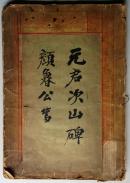 元君次山碑
顏魯公書